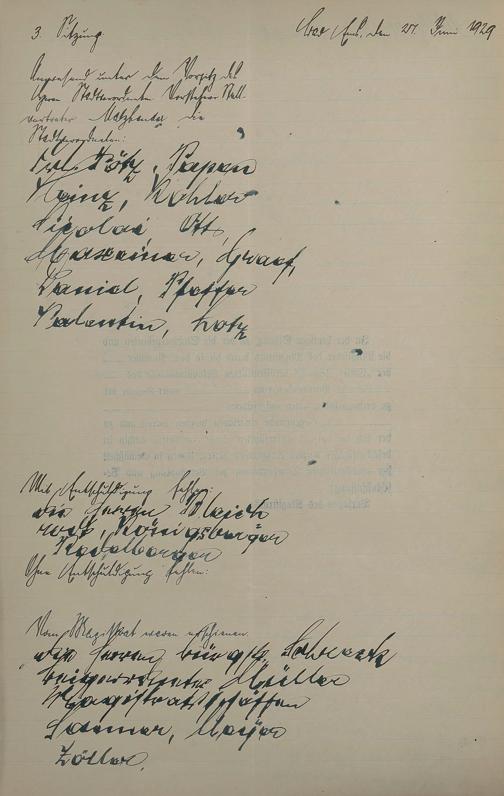 3. Sitzung.
Bad Ems, den 27. Juni 1929
Anwesend unter dem Vorsitz des
Herrn Stadtverordneten Vorsteher Stell-
vertreter die
Stadtverordneten:
Frl. Pötz, Papen
Heinz, Kohler
Nicolai Ott,
Maxeiner, Graef,
Daniel, Pfeffer
Valentin, Lotz
Mit Entschuldigung fehlen:
die Herren Bleich
Königsberger
Ohne Entschuldigung fehlen:
Vom Magistrat waren erschienen
die Herren Bürgstr. Schreck
Beigeordneter Müller
Magistratsschöffen
Sommer, Meyer
Zöller.